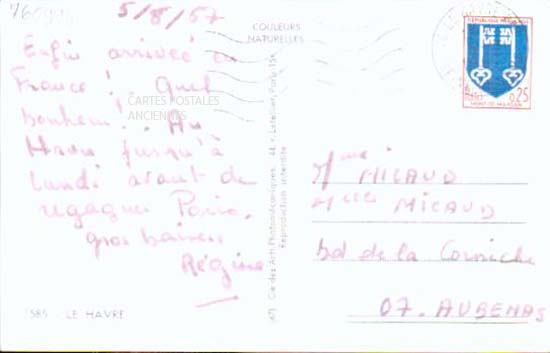 5/8/67
Enfin arrivée en
France ! Quel
bonheur ! Au
Havre jusqu'à
lundi avant de
regagner Paris.
gros baisers
Régine
1585 - LE HAVRE
COULEURS
NATURELLES
CARTES POSTALES
ANCIENNES
Cie des Arts Photomécaniques, 44, r. Letellier, Paris-15e
Reproduction interdite
REPUBLIQUE FRANÇAISE
0,25
MONT-DE-MARSAN
Mme MICAUD
Melle MICAUD
bd de la Corniche
07. AUBENAS